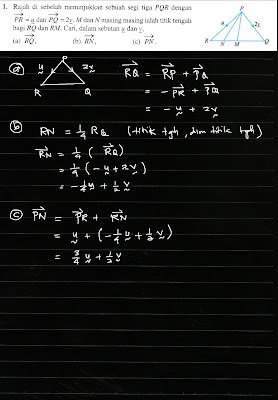 1. Rajah di sebelah menunjukkan sebuah segi tiga PQR dengan
PR = u dan PQ = 2v. M dan N masing masing ialah titik tengah
bagi RQ dan RM. Cari, dalam sebutan u dan v,
(a) RQ, (b) RN, (c) PN.
P
R N M Q
(a) P
u 2v
R Q
RQ = RP + PQ
= -PR + PQ
= -u + 2v
(b) RN = 1/4 RQ (titik tgh, dlm titik tgh)
RN = 1/4 (RQ)
= 1/4 (-u + 2v)
= -1/4 u + 1/2 v
(c) PN = PR + RN
= u + (-1/4 u + 1/2 v)
= 3/4 u + 1/2 v